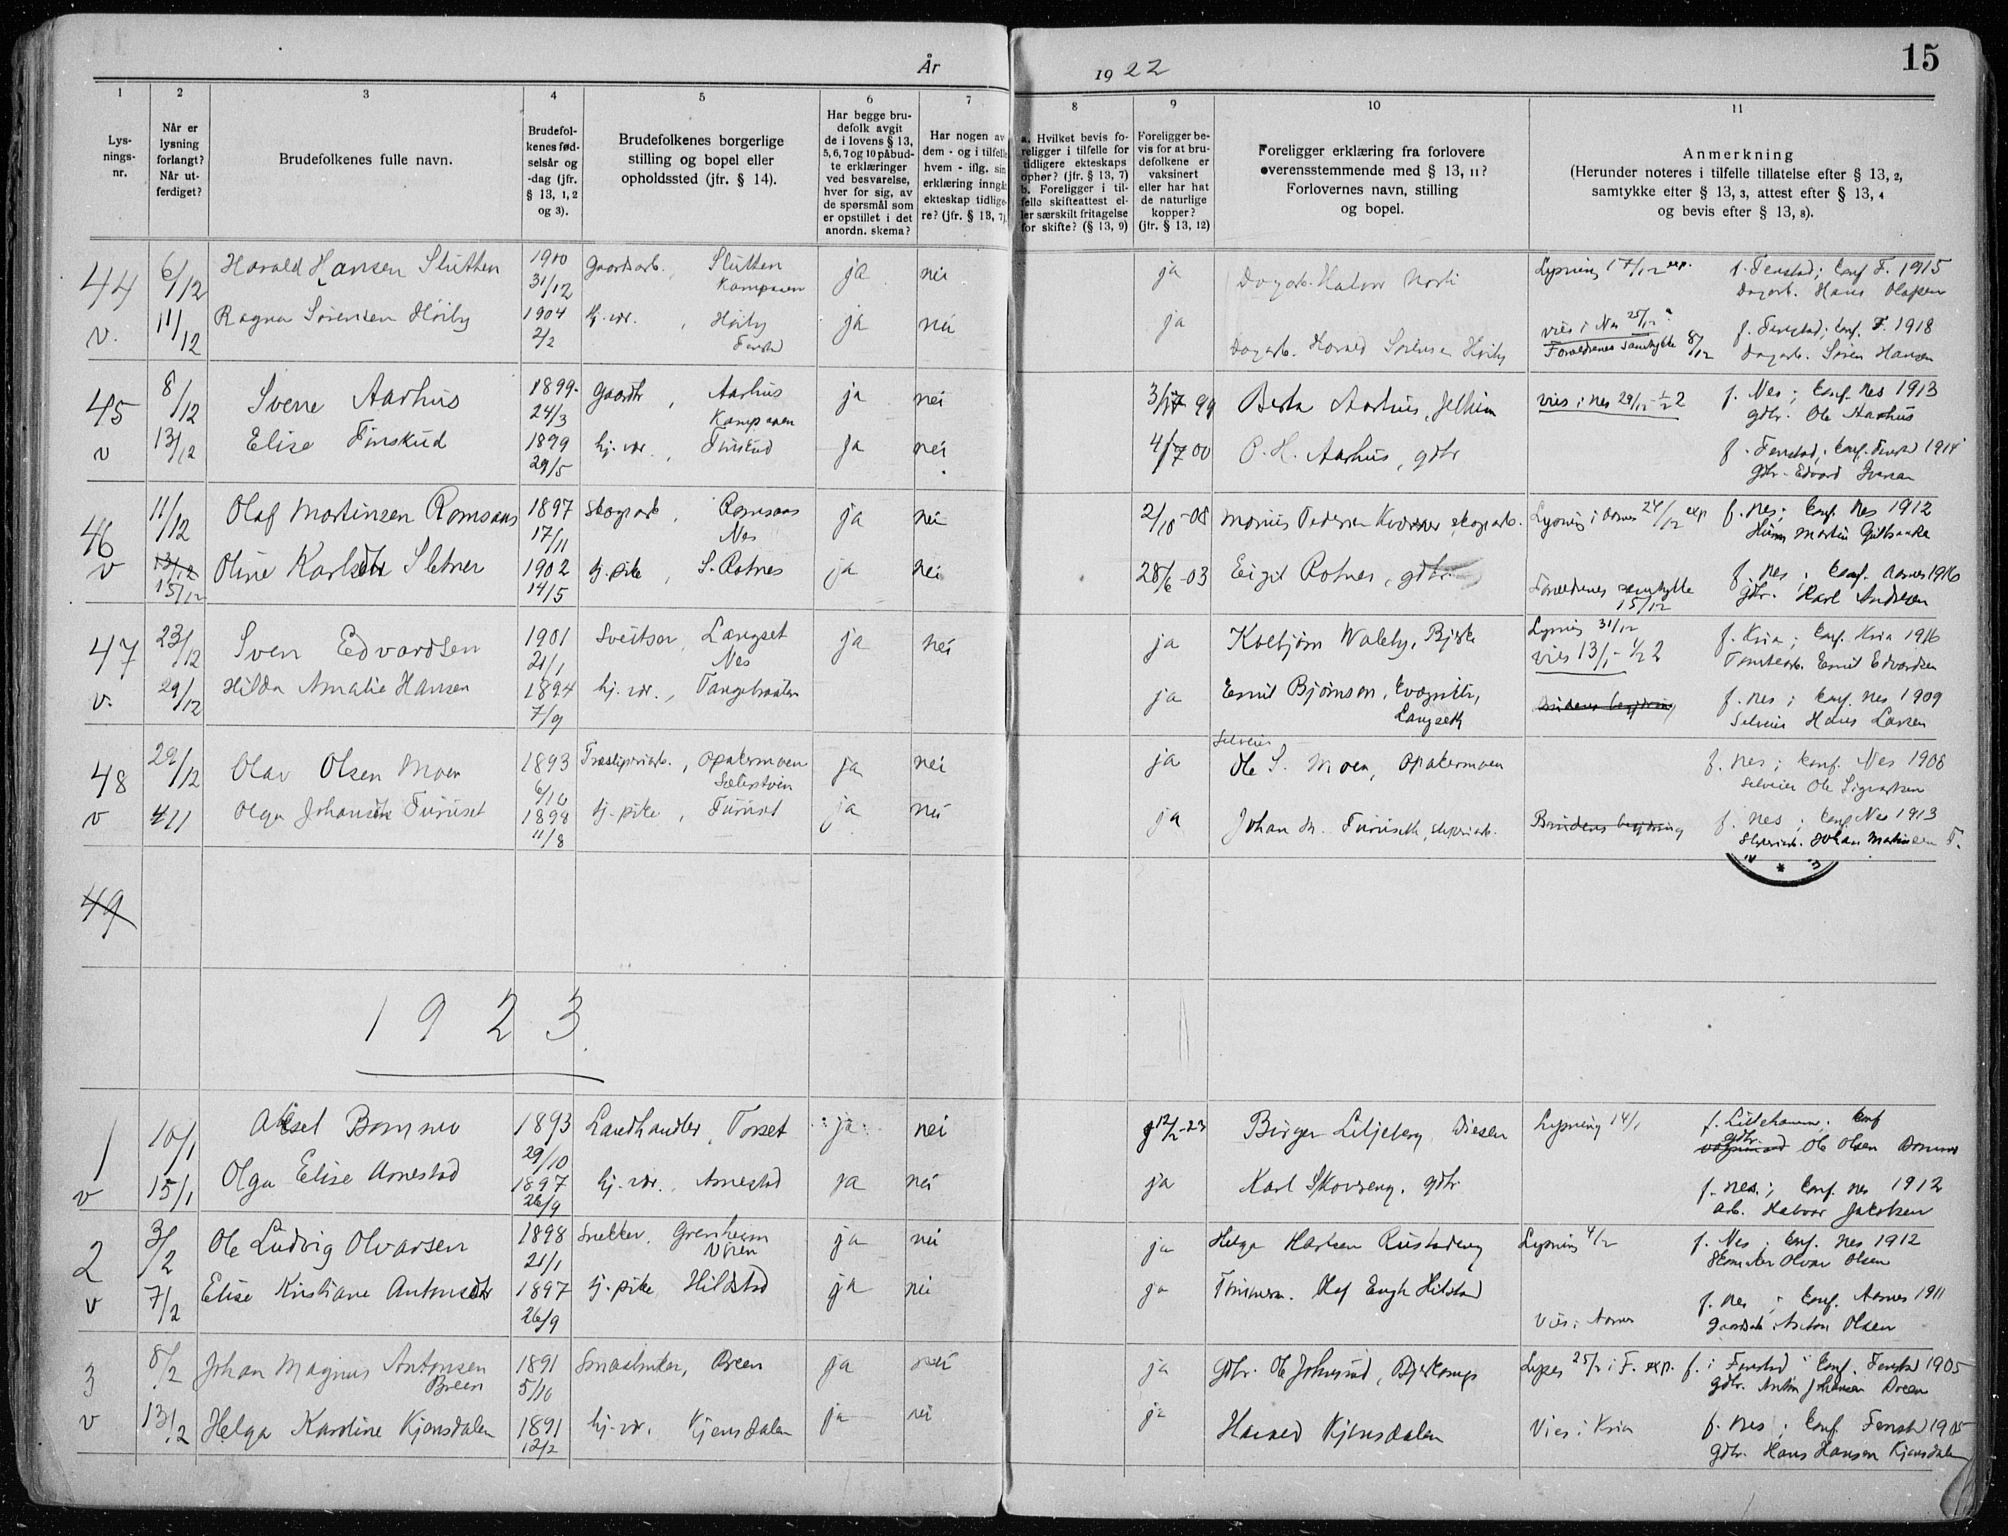 År 1922
15
1 2 3 4 5 6 7 8 9 10 11
Lys-
nings-
nr.
Når er
lysning
forlangt?
Når ut-
ferdiget?
Brudefolkenes fulle navn.
Brudefol-
kenes fød-
selsår og
-dag (jfr.
§ 13, 1, 2
og 3).
Brudefolkenes borgerlige
stilling og bopel eller
opholdssted (jfr. § 14).
Har begge bru-
defolk avgit
de i lovens § 13,
5, 6, 7 og 10 påbud-
te erklæringer
ved besvarelse,
hver for sig, av
de spørsmål som
er opstillet i det
anordn. skema?
Har nogen av
dem - og i tilfelle
hvem - iflg. sin
erklæring inngåt
ekteskap tidlige-
re? (jfr. § 13, 7).
a. Hvilket bevis fo-
religger i tilfelle for
tidligere ekteskaps
ophør? (jfr. § 13, 7)
b. Foreligger i til-
felle skifteattest el-
ler særskilt fritagelse
for skifte? (§ 13, 9)
Foreligger be-
vis for at bru-
defolkene er
vaksinert
eller har hat
de naturlige
kopper?
(jfr. § 13, 12)
Foreligger erklæring fra forlovere
overensstemmende med § 13, 11?
Forlovernes navn, stilling
og bopel.
Anmerkning
(Herunder noteres i tilfelle tillatelse efter § 13, 2,
samtykke efter § 13, 3, attest efter § 13, 4
og bevis efter § 13, 8).
44 6/12 Harald Hansen Slutten 1900 31/12 Gaardsarb., Slutten Kampaaen ja nei ja Dagarb. Halvor Lysning 17/12 exp. f. Fenstad; Conf. F. 1915
Dagarb. Hans Olafsen
v. 11/12 Ragna Sørensen Høiby 1904 2/2 hj. vær., Høiby Fenstad ja nei ja Dagarb. Harald Sørensen Høiby vies i Nes 25/12 f. Fenstad; Conf. F. 1918
Forældrenes samtykke 8/12 Dagarb. Søren Hansen
45 8/12 Svene Aarhus 1899 24/3 Gaardbr, Aarhus Kampaaen ja nei 3/7 99 Berta Aarhus, vies i Nes 29/12 - 1/2 2 f. Nes; Conf. Nes 1913
gdbr. Ole Aarhus
v 13/12 Elise Finskud 1899 29/5 hj. vær., Finskud ja nei 4/7 00 O. H. Aarhus, gdbr f. Fenstad; Conf. Fenstad 1914
Gdbr. Edvard Iversen
46 11/12 Olaf Martinsen Romsaas 1897 17/11 skogsarb, Romsaas Nes ja nei 2/10-08 Marius Pedersen Kværner, skogsarb. Lysning i Aarnes 24/12 exp f. Nes; Conf. Nes 1912
Martin
v 13/12 15/12 Oline Karlsdtr Sletner 1902 14/5 hj. pike, S. Rotnes ja nei 28/6-03 Eigil Rotnes, gdbr. Forældrenes samtykke 15/12 f. Nes; Conf. Aarnes 1916
gdbr. Karl Andersen
47 23/12 Sven Edvardsen 1901 21/1 Sveitser, Langset Nes ja nei ja Kolbjørn Waleby, Bjerke Lysning 31/12 f. Kria; Conf. Kria 1916
vies 13/1 - 1/2 2 Emil Edvardsen
v. 29/12 Hilda Amalie Hansen 1894 7/9 hj. vær., Tangebraaten ja nei ja Emil Bjørnson, Langseth Brudens begjæring f. Nes; Conf. Nes 1909
Selveier Hans Larsen
48 29/12 Olav Olsen Moen 1893 6/10 Træsliperiarb., Opakermoen ja nei ja Selveier Ole S. Moen, Opakermoen f. Nes; Conf. Nes 1908
Selveier Ole Sigvartsen
v 4/1 Olga Johansdtr Furuset 1898 11/8 hj. pike, Furuset ja nei ja Johan M. Furuseth, sliperiarb. Brudens begjæring f. Nes; Conf. Nes 1913
Sliperiarb. Johan Martinsen F.
49
1923
1 10/1 Aksel Bommo 1893 29/10 Landhandler, Torset ja nei 12/2-23 Birger Liljeberg, Diesen Lysning 14/1 f. Lillehammer; Conf
gdbr. Ole Olsen
v 15/1 Olga Elise Arnestad 1897 26/9 hj. vær., Arnestad ja nei ja Karl Skovseng, gdbr f. Nes; Conf. Nes 1912
arb. Halvor Jakobsen
2 3/2 Ole Ludvig Olvarsen 1898 21/1 Snekker, Grenheim ja nei ja Helge Karlsen Rustadeng Lysning 4/2 f. Nes; Conf. Nes 1912
Skomaker Olvar Olsen
v 7/2 Elise Kristiane Antonsdtr 1897 26/9 hj. pike Hildstad ja nei ja Tømmerm. Olaf Engh Hilstad Vies i Aarnes f. Nes; Conf. Aarnes 1911
Gaardsarb. Anton Olsen
3 8/2 Johan Magnus Antonsen Breen 1891 5/10 Smaabruker, Breen ja nei ja Gdbr. Ole Johnsrud, Lyses 25/2 i F. exp. f. i Fenstad; Conf. Fenstad 1905
gdbr. Anton Johansen Breen
v 13/2 Helga Karoline Kjensdalen 1891 12/2 hj. vær. Kjensdalen ja nei ja Harald Kjensdalen Vies i Kria f. Nes; Conf. Fenstad 1905
gdbr. Hans Hansen Kjensdalen